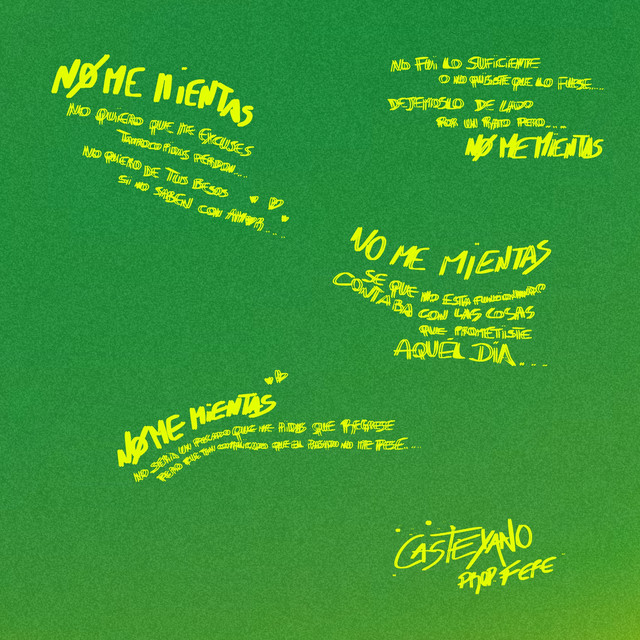 NO ME MIENTAS
NO QUIERO QUE ME EXCUSES
TAMPOCO PIDAS PERDON...
NO QUIERO DE TUS BESOS
SI NO SABEN CON AMOR....
NO FUI LO SUFICIENTE
O NO QUISISTE QUE LO FUESE....
DEJEMOSLO DE LADO
POR UN RATO PERO....
NO ME MIENTAS
NO ME MIENTAS
SE QUE NO ESTA FUNCIONANDO
CONTABA CON LAS COSAS
QUE PROMETISTE
AQUÉL DÍA...
NO ME MIENTAS
NO SERIA UN PECADO QUE ME PIDAS QUE REGRESE
PERO FUE TAN COMPLICADO QUE EL PASADO NO ME PESE....
CASTEYANO
FEFE